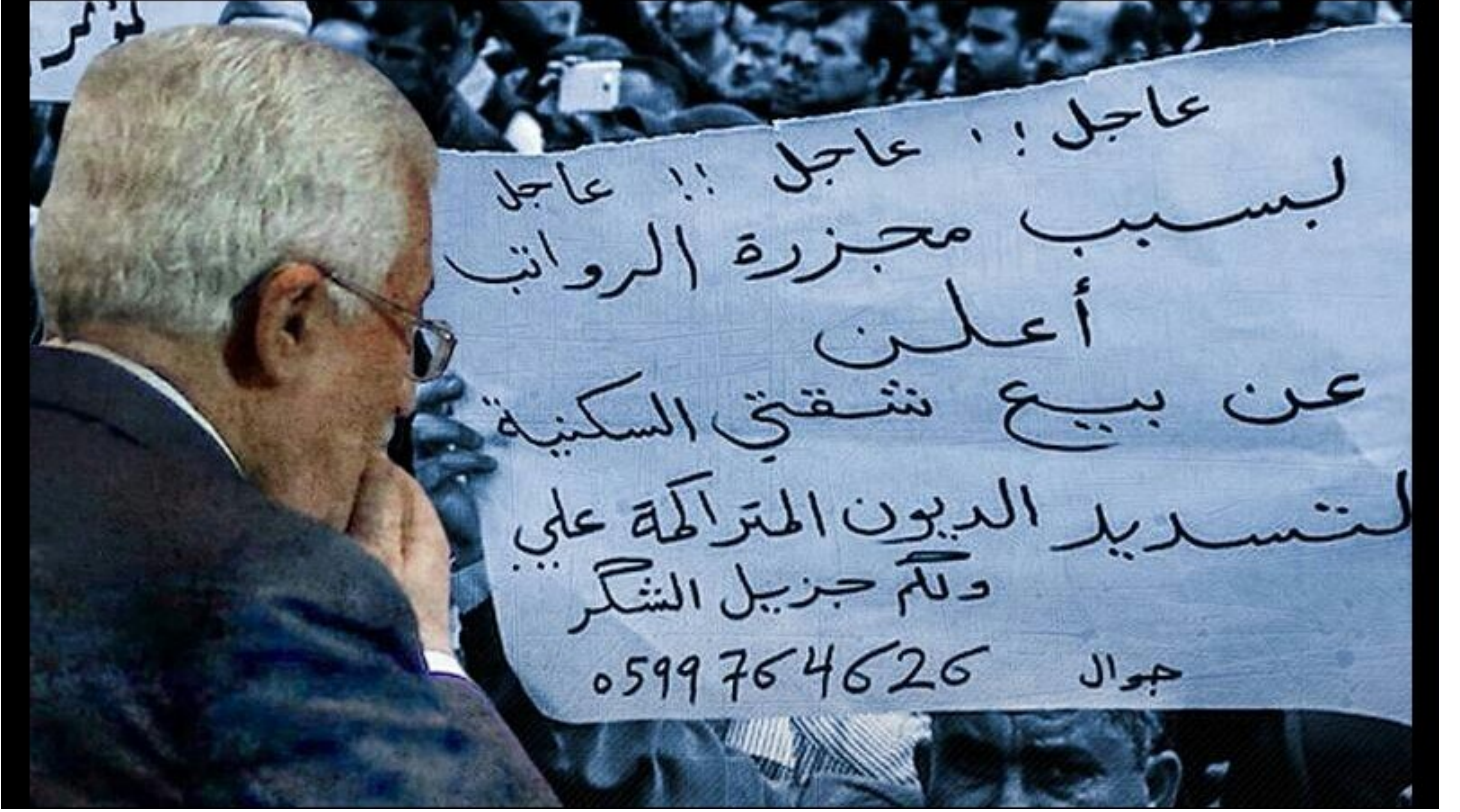 عاجل !! عاجل !! عاجل
بسبب مجزرة الرواتب
أعلن
عن بيع شقتي السكنية
لتسديد الديون المتراكمة علي
ولكم جزيل الشكر
جوال 0599764626